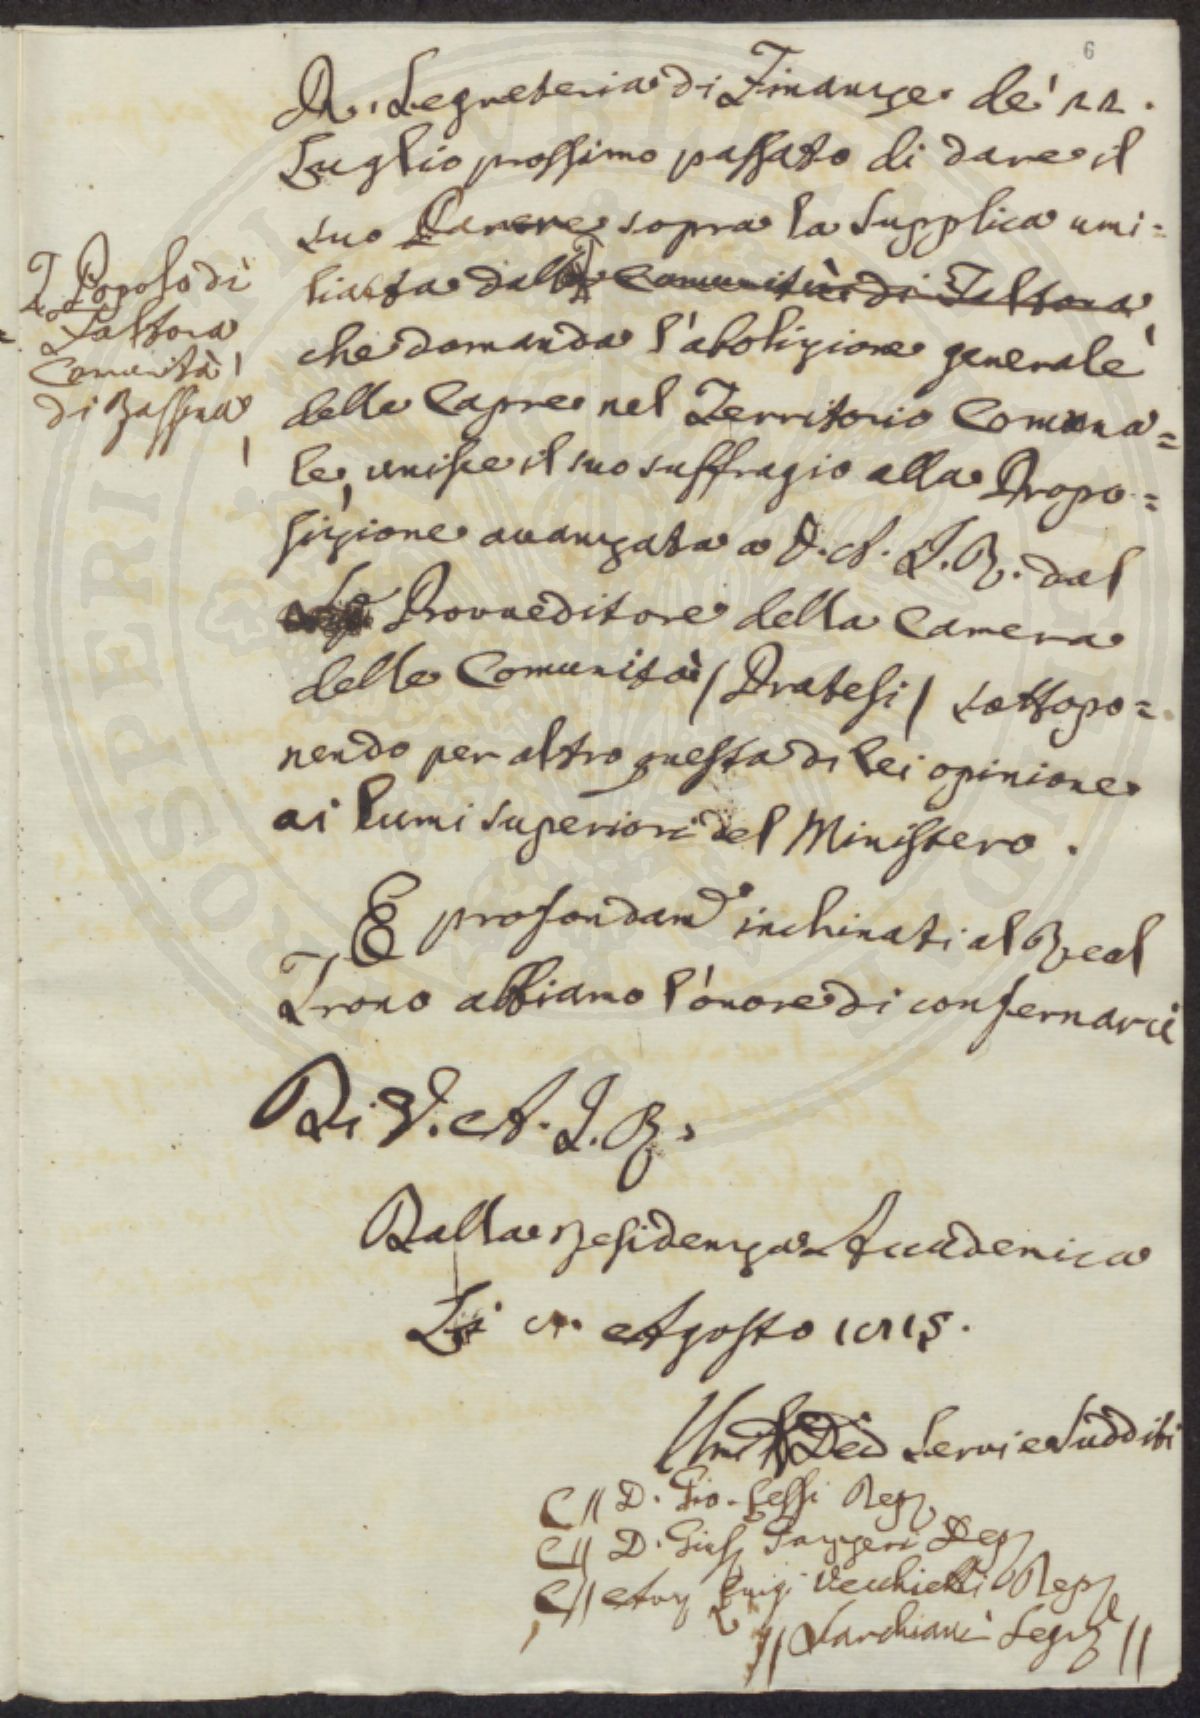 6
R. Segreteria di Finanze de' 22.
Luglio prossimo passato di dare il
suo Parere sopra la Supplica umi=
liata dalla Comunità di Faltona
che domanda l'abolizione generale
delle Capre nel Territorio Comuna=
le, unisce il suo suffragio alla Propo=
sizione avanzata a V. A. I. R. dal
Provveditore della Camera
delle Comunità (Pratesi) sottopo=
nendo per altro questa di lei opinione
ai lumi superiori del Ministero.
E profondam.e inchinati al Real
Trono abbiamo l'onore di confernarci
Di V. A. I. R.
Dalla Residenza Accademica
Li Agosto
Umi Dev Servi e Sudditi
D. Gio. Sessi Reg
D. Gius
Luigi Vecchietti Reg
Sarchiani Segr
Popolo di
Faltona
Comunità
di Zassina
SPERI